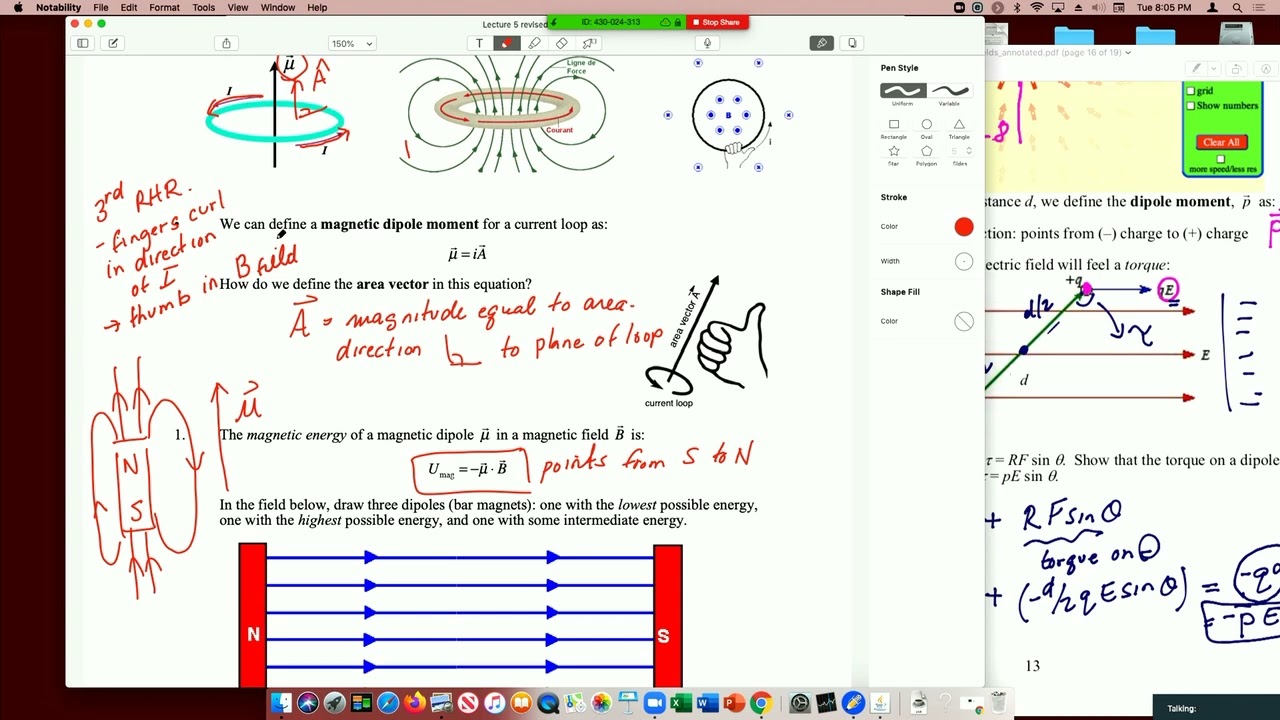 Notability File Edit Format Tools View Window Help
Tue 8:05 PM
Lecture 5 revised
ID: 430-024-313
Stop Share
150%
T
ields_annotated.pdf (page 16 of 19)
μ
A
I
I
Ligne de
Force
Courant
B
i
3rd RHR.
- fingers curl
in direction
of I
→ thumb in B field
We can define a magnetic dipole moment for a current loop as:
μ = iA
How do we define the area vector in this equation?
A = magnitude equal to area.
direction to plane of loop
area vector A
current loop
N
S
μ
1. The magnetic energy of a magnetic dipole μ in a magnetic field B is:
Umag = -μ · B
points from S to N
In the field below, draw three dipoles (bar magnets): one with the lowest possible energy,
one with the highest possible energy, and one with some intermediate energy.
N
S
Pen Style
Uniform Variable
Rectangle Oval Triangle
Star Polygon
5
Stroke
Color
Width
Shape Fill
Color
-8
grid
Show numbers
Clear All
more speed/less res
stance d, we define the dipole moment, p as:
ction: points from (–) charge to (+) charge
P
ectric field will feel a torque:
+q
qE
d/2
τ
E
d
τ = RF sin θ. Show that the torque on a dipole
= pE sin θ.
+ RF sin θ
torque on ⊖
+ (-d/2 q E sin θ) = -q
= -pE
13
Talking: